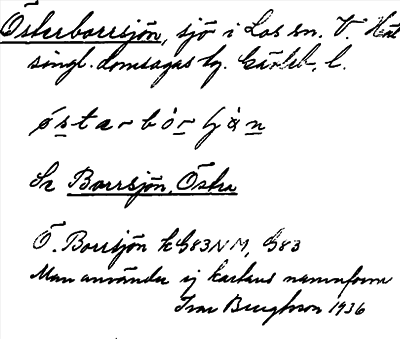 Österborrsjön, sjö i Los sn. V. Häl
singl. domsagas tg. Gävleb. l.
östarbórʃö̀n
Se Borrsjön, Östra
Ö. Borrsjön k G83NM, G83
Man använder ej kartans namnform
Ivar Bengtsson 1936